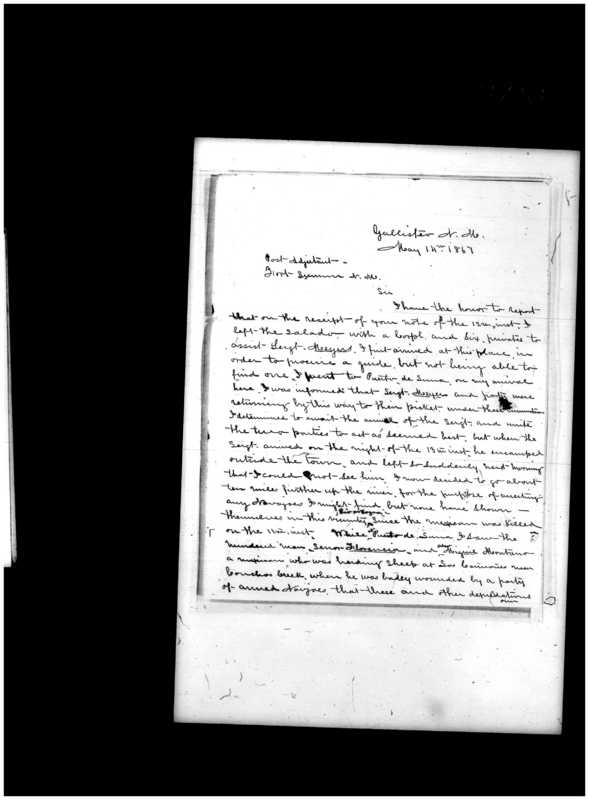 Gallister N. M.
May 14th 1867
Post Adjutant
Fort Sumner N. M.
Sir
I have the honor to report
that on the receipt of your note of the 12th, inst. I
left the Salado with a Corpl. and six privates to
assist Sergt. I first arrived at this place, in
order to procure a guide, but not being able to
find one, I went to Puerto de Luna, on my arrival
here I was informed that Sergt. and party were
returning by this way to their picket under these
I determined to await the arrival of the Sergt. and unite
the two parties to act as seemed best, but when the
Sergt. arrived on the night of the 13th inst he encamped
outside the town, and left so suddenly next morning
that I could not see him. I now decided to go about
ten miles further up the river, for the purpose of meeting
any Navajoes I might find, but none have shown
themselves in this vicinity since the mexican was killed
on the 11th, inst. While Puerto de Luna I saw the
man, Senor Florencio and Miguel Montano
a mexican who was herding sheep at Los near
Conchas Creek, when he was badly wounded by a party
of armed Navajoes, that these and other depredations